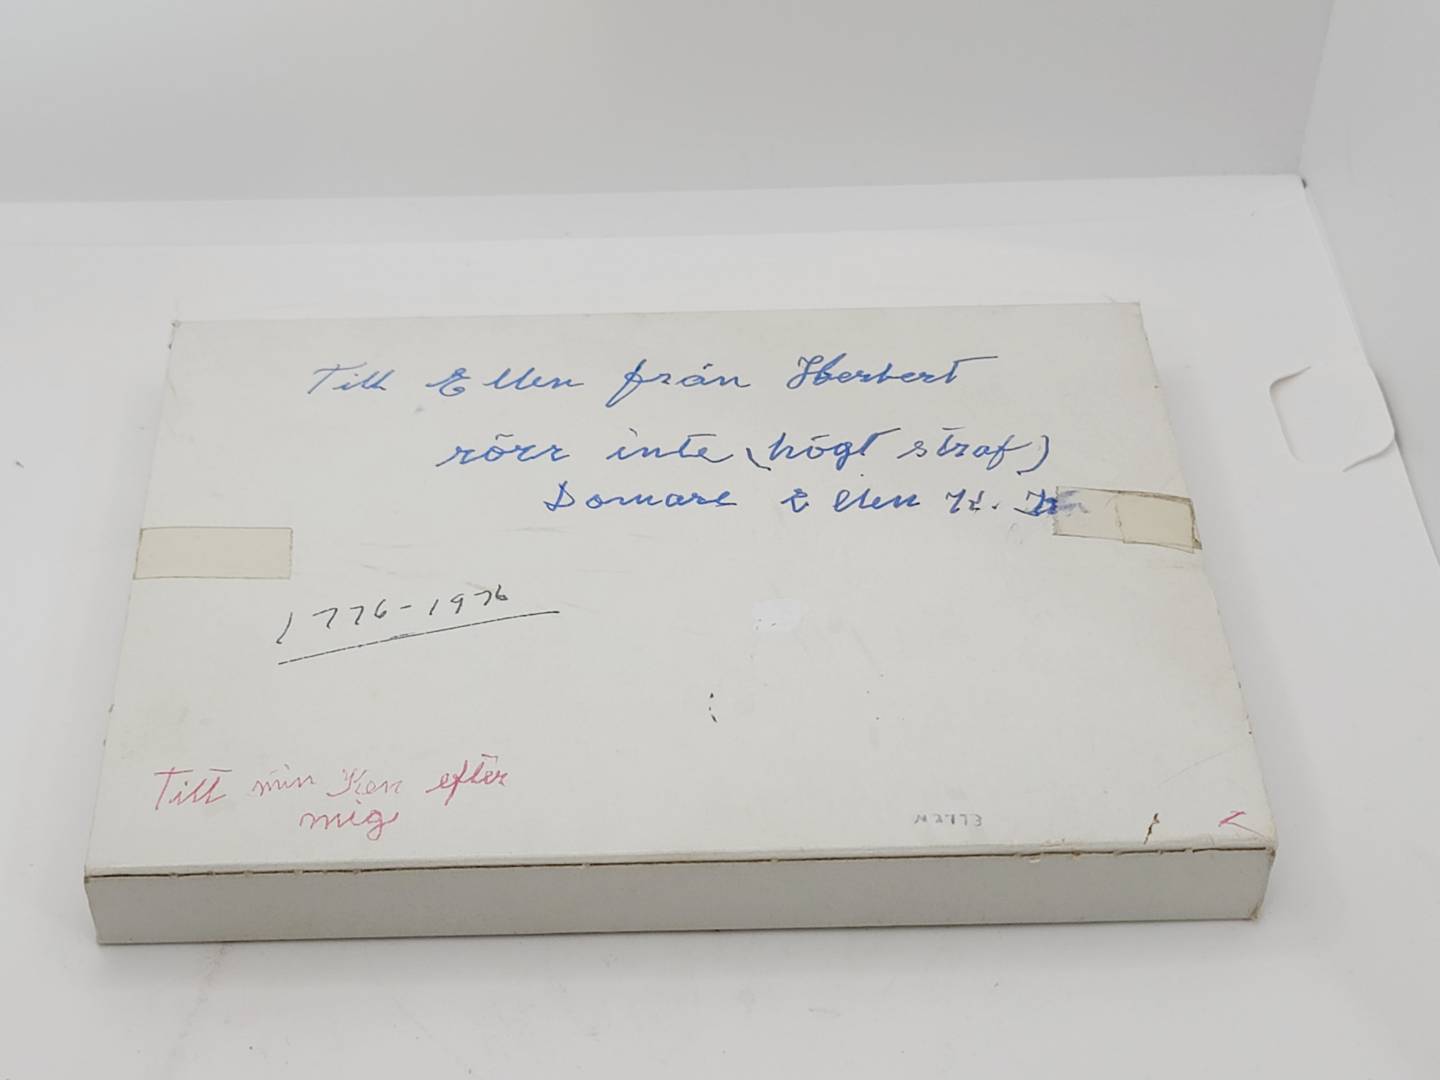 Till Ellen från Herbert
rörr inte (högt straf)
Domare Ellen
1776-1976
Till min Ken efter
mig
ELLEN